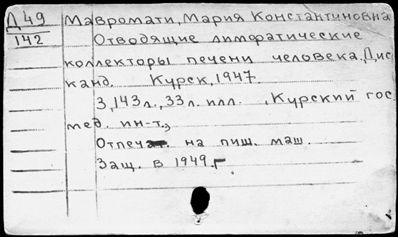 Д 49
142
Мавромати, Мария Константиновна
Отводящие лимфатические
коллекторы печени человека. Дис
канд. Курск, 1947.
3, 143 л., 33 л. илл. , Курский гос
мед. ин-т.,
Отпечат. на пиш. маш.
Защ. в 1949 г.